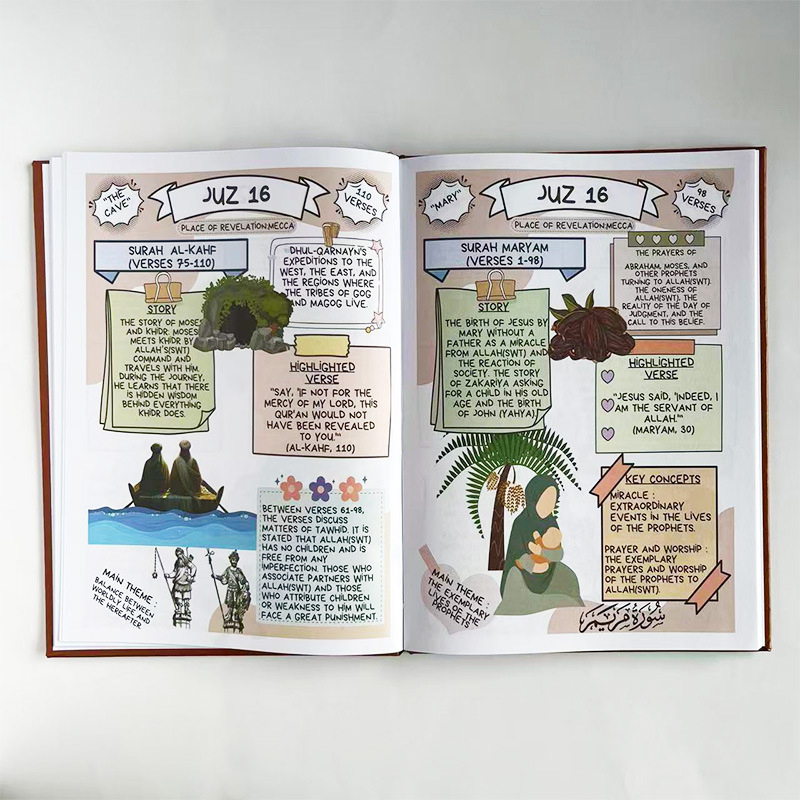 "THE
CAVE"
JUZ 16
110
VERSES
PLACE OF REVELATION:MECCA
SURAH AL-KAHF
(VERSES 75-110)
DHUL-QARNAYN'S
EXPEDITIONS TO THE
WEST, THE EAST, AND
THE REGIONS WHERE
THE TRIBES OF GOG
AND MAGOG LIVE.
STORY
THE STORY OF MOSES
AND KHIDR: MOSES
MEETS KHIDR BY
ALLAH'S(SWT)
COMMAND AND
TRAVELS WITH HIM.
DURING THE JOURNEY,
HE LEARNS THAT THERE
IS HIDDEN WISDOM
BEHIND EVERYTHING
KHIDR DOES.
HIGHLIGHTED
VERSE
"SAY, 'IF NOT FOR THE
MERCY OF MY LORD, THIS
QUR'AN WOULD NOT
HAVE BEEN REVEALED
TO YOU.'"
(AL-KAHF, 110)
BETWEEN VERSES 61-98,
THE VERSES DISCUSS
MATTERS OF TAWHID. IT IS
STATED THAT ALLAH(SWT)
HAS NO CHILDREN AND IS
FREE FROM ANY
IMPERFECTION. THOSE WHO
ASSOCIATE PARTNERS WITH
ALLAH(SWT) AND THOSE
WHO ATTRIBUTE CHILDREN
OR WEAKNESS TO HIM WILL
FACE A GREAT PUNISHMENT.
MAIN THEME :
BALANCE BETWEEN
WORLDLY LIFE AND
THE HEREAFTER
"MARY"
JUZ 16
98
VERSES
PLACE OF REVELATION:MECCA
SURAH MARYAM
(VERSES 1-98)
THE PRAYERS OF
ABRAHAM, MOSES, AND
OTHER PROPHETS
TURNING TO ALLAH(SWT).
THE ONENESS OF
ALLAH(SWT). THE
REALITY OF THE DAY OF
JUDGMENT, AND THE
CALL TO THIS BELIEF.
STORY
THE BIRTH OF JESUS BY
MARY WITHOUT A
FATHER AS A MIRACLE
FROM ALLAH(SWT) AND
THE REACTION OF
SOCIETY. THE STORY
OF ZAKARIYA ASKING
FOR A CHILD IN HIS OLD
AGE AND THE BIRTH
OF JOHN (YAHYA)
HIGHLIGHTED
VERSE
"JESUS SAID, 'INDEED, I
AM THE SERVANT OF
ALLAH.'"
(MARYAM, 30)
KEY CONCEPTS
MIRACLE :
EXTRAORDINARY
EVENTS IN THE LIVES
OF THE PROPHETS.
PRAYER AND WORSHIP :
THE EXEMPLARY
PRAYERS AND WORSHIP
OF THE PROPHETS TO
ALLAH(SWT).
MAIN THEME :
THE EXEMPLARY
LIVES OF THE
PROPHETS
سُورَةُ مَرْيَم